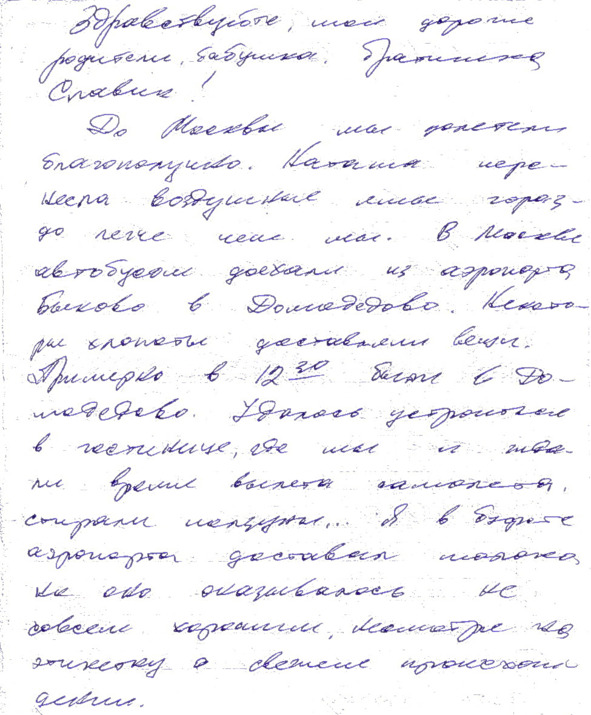 Здравствуйте, мои дорогие
родители, бабушка, братишка
Славик!
До Москвы мы долетели
благополучно. Наташа пере-
несла воздушные ямы гораз-
до легче чем мы. В Москве
автобусом доехали из аэропорта
Быково в Домодедово. Некото-
рые хлопоты доставляли вещи.
Примерно в 12 30 были в До-
модедово. Удалось устроиться
в гостинице, где мы и жда-
ли время вылета самолета,
стирали ползунки... Я в буфете
аэропорта доставал молоко,
но оно оказывалось не
совсем хорошим, несмотря на
этикетку о свежем происхож
дении.